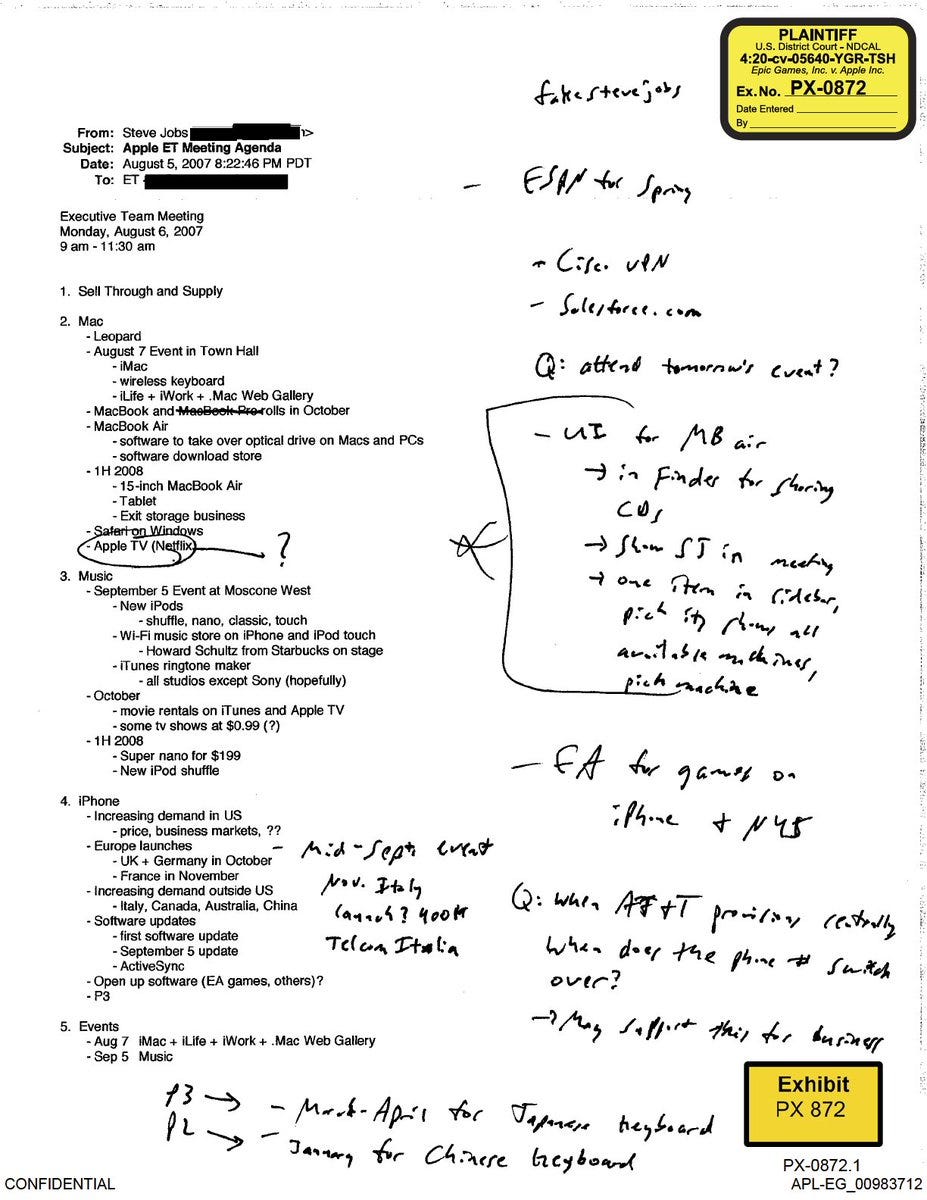 PLAINTIFF
U.S. District Court - NDCAL
4:20-cv-05640-YGR-TSH
Epic Games, Inc. v. Apple Inc.
Ex.No. PX-0872
Date Entered
By
fakestevejobs
From: Steve Jobs
Subject: Apple ET Meeting Agenda
Date: August 5, 2007 8:22:46 PM PDT
To: ET
- ESPN for Spring
Executive Team Meeting
Monday, August 6, 2007
9 am - 11:30 am
- Cisco VPN
- Salesforce.com
Q: attend tomorrow's event?
1. Sell Through and Supply
2. Mac
- Leopard
- August 7 Event in Town Hall
- iMac
- wireless keyboard
- iLife + iWork + .Mac Web Gallery
- MacBook and MacBook Pro rolls in October
- MacBook Air
- software to take over optical drive on Macs and PCs
- software download store
- 1H 2008
- 15-inch MacBook Air
- Tablet
- Exit storage business
- Safari on Windows
- Apple TV (Netflix) ?
- UI for MB air
→ in Finder for sharing
CDs
→ Show SJ in meeting
→ one item in sidebar,
pick it, shows all
available machines,
pick machine
3. Music
- September 5 Event at Moscone West
- New iPods
- shuffle, nano, classic, touch
- Wi-Fi music store on iPhone and iPod touch
- Howard Schultz from Starbucks on stage
- iTunes ringtone maker
- all studios except Sony (hopefully)
- October
- movie rentals on iTunes and Apple TV
- some tv shows at $0.99 (?)
- 1H 2008
- Super nano for $199
- New iPod shuffle
- EA for games on
iPhone + N45
4. iPhone
- Increasing demand in US
- price, business markets, ??
- Europe launches
- UK + Germany in October
- France in November
- Increasing demand outside US
- Italy, Canada, Australia, China
- Software updates
- first software update
- September 5 update
- ActiveSync
- Open up software (EA games, others)?
- P3
- Mid-Sept. event
Nov. Italy
launch? 400M
Telecom Italia
Q: When AT+T provisions centrally
when does the phone # switch
over?
→ May support this for business
5. Events
- Aug 7 iMac + iLife + iWork + .Mac Web Gallery
- Sep 5 Music
P3 → - March-April for Japanese keyboard
P2 → - January for Chinese keyboard
Exhibit
PX 872
PX-0872.1
CONFIDENTIAL
APL-EG_00983712